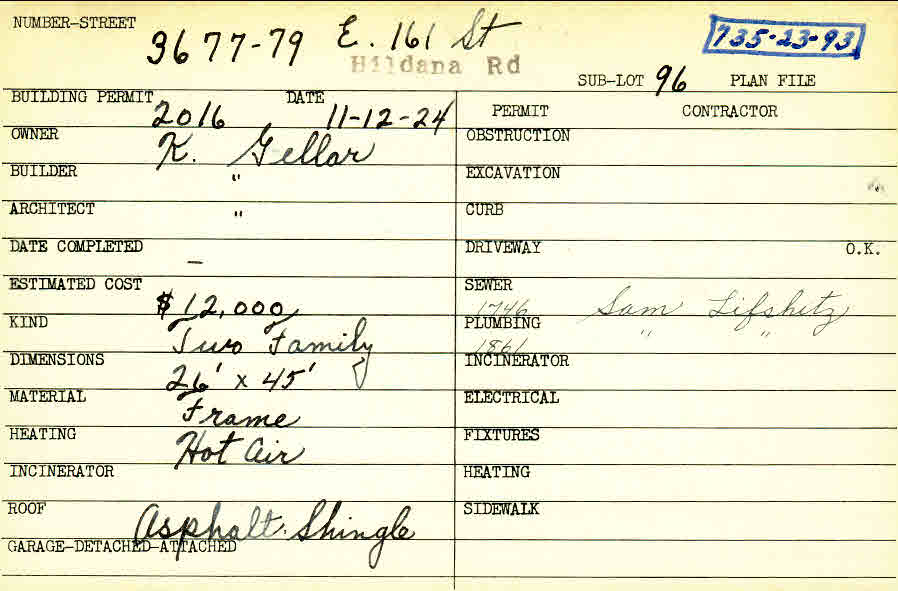 NUMBER-STREET 3677-79 E. 161 St 735-23-93
Hildana Rd
SUB-LOT 96 PLAN FILE
BUILDING PERMIT 2016 DATE 11-12-24
OWNER K. Gellar
BUILDER "
ARCHITECT "
DATE COMPLETED –
ESTIMATED COST $12,000
KIND Two Family
DIMENSIONS 26' x 45'
MATERIAL Frame
HEATING Hot Air
INCINERATOR
ROOF Asphalt Shingle
GARAGE-DETACHED-ATTACHED
PERMIT CONTRACTOR
OBSTRUCTION
EXCAVATION
CURB
DRIVEWAY O.K.
SEWER 1746 Sam Lifshetz
PLUMBING 1861 " "
INCINERATOR
ELECTRICAL
FIXTURES
HEATING
SIDEWALK